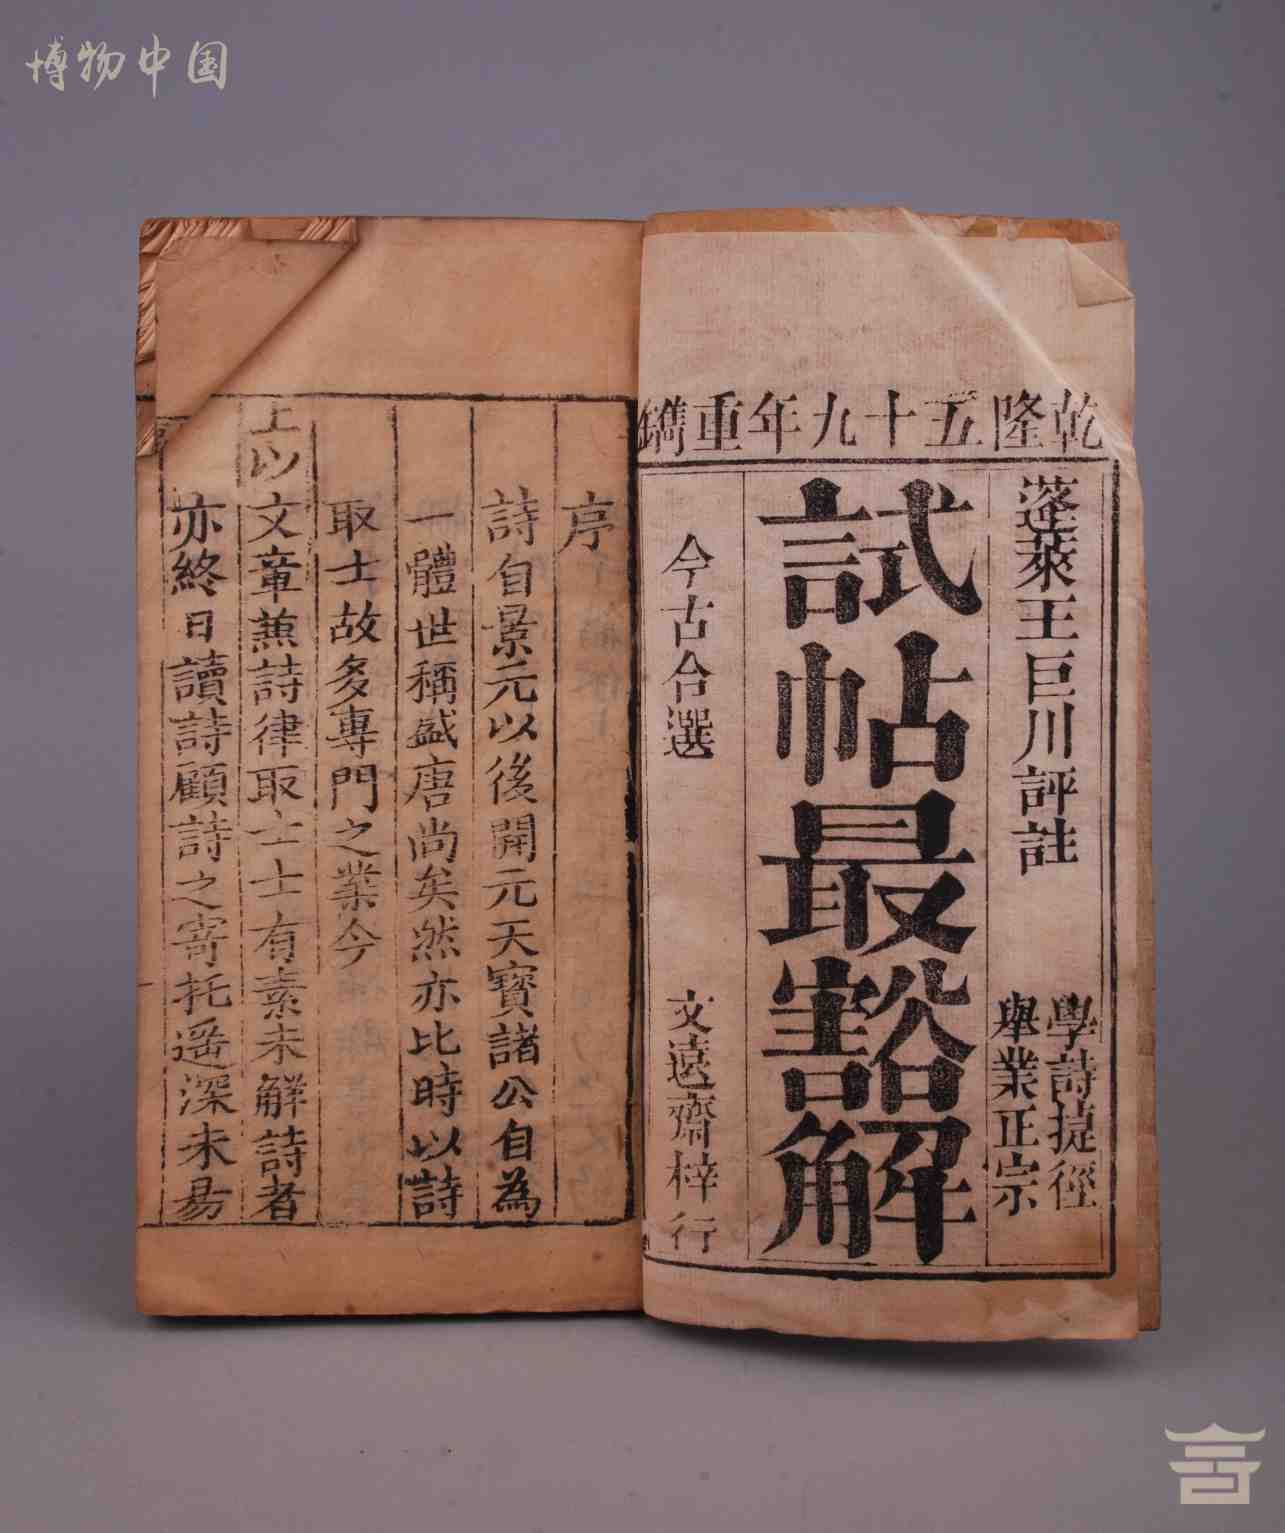 博物中国
乾隆五十九年重鐫
蓬萊王巨川評註
學詩捷徑
舉業正宗
試帖最豁解
今古合選
文遠齋梓行
序
詩自景元以後開元天寶諸公自為
一體世稱盛唐尚矣然亦比時以詩
取士故多專門之業今
上以文章兼詩律取士士有素未解詩者
亦終日讀詩顧詩之寄托遥深未易